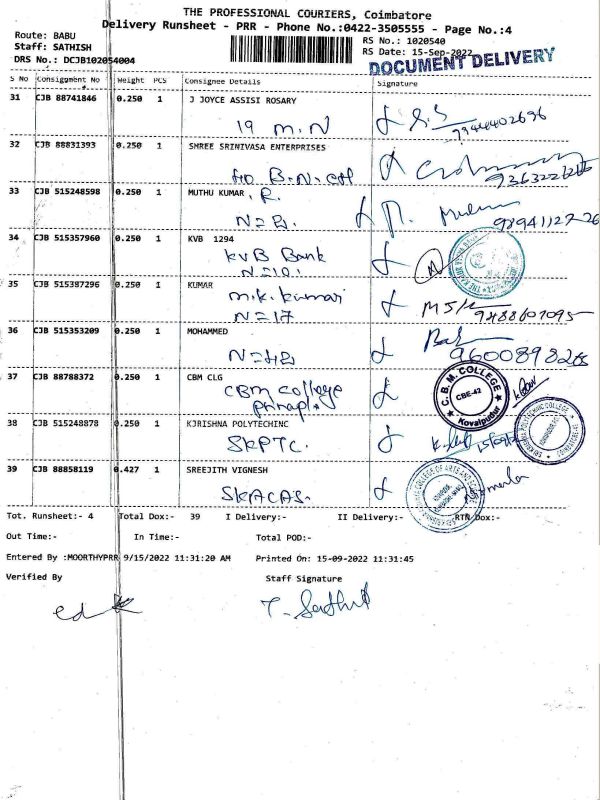 THE PROFESSIONAL COURIERS, Coimbatore
Delivery Runsheet - PRR - Phone No.:0422-3505555 - Page No.:4
Route: BABU
Staff: SATHISH
DRS No.: DCJB102054004
RS No.: 1020540
RS Date: 15-Sep-2022
DOCUMENT DELIVERY
S No Consignment No Weight PCS Consignee Details Signature
31 CJB 88741846 0.250 1 J JOYCE ASSISI ROSARY
19 M.N
32 CJB 88831393 0.250 1 SHREE SRINIVASA ENTERPRISES
33 CJB 515248598 0.250 1 MUTHU KUMAR . R.
34 CJB 515357960 0.250 1 KVB 1294
KVB Bank
35 CJB 515387296 0.250 1 KUMAR
M.K. Kumar
N=17
36 CJB 515353209 0.250 1 MOHAMMED
37 CJB 88788372 0.250 1 CBM CLG
CBM College
C.B.M. COLLEGE
CBE-42
Kovaipudur
38 CJB 515248878 0.250 1 KJRISHNA POLYTECHINC
SKPTC.
39 CJB 88858119 0.427 1 SREEJITH VIGNESH
SKACAS.
Tot. Runsheet:- 4 Total Dox:- 39 I Delivery:- II Delivery:- RTN Dox:-
Out Time:- In Time:- Total POD:-
Entered By :MOORTHYPRR 9/15/2022 11:31:20 AM Printed On: 15-09-2022 11:31:45
Verified By Staff Signature
T. Sathish